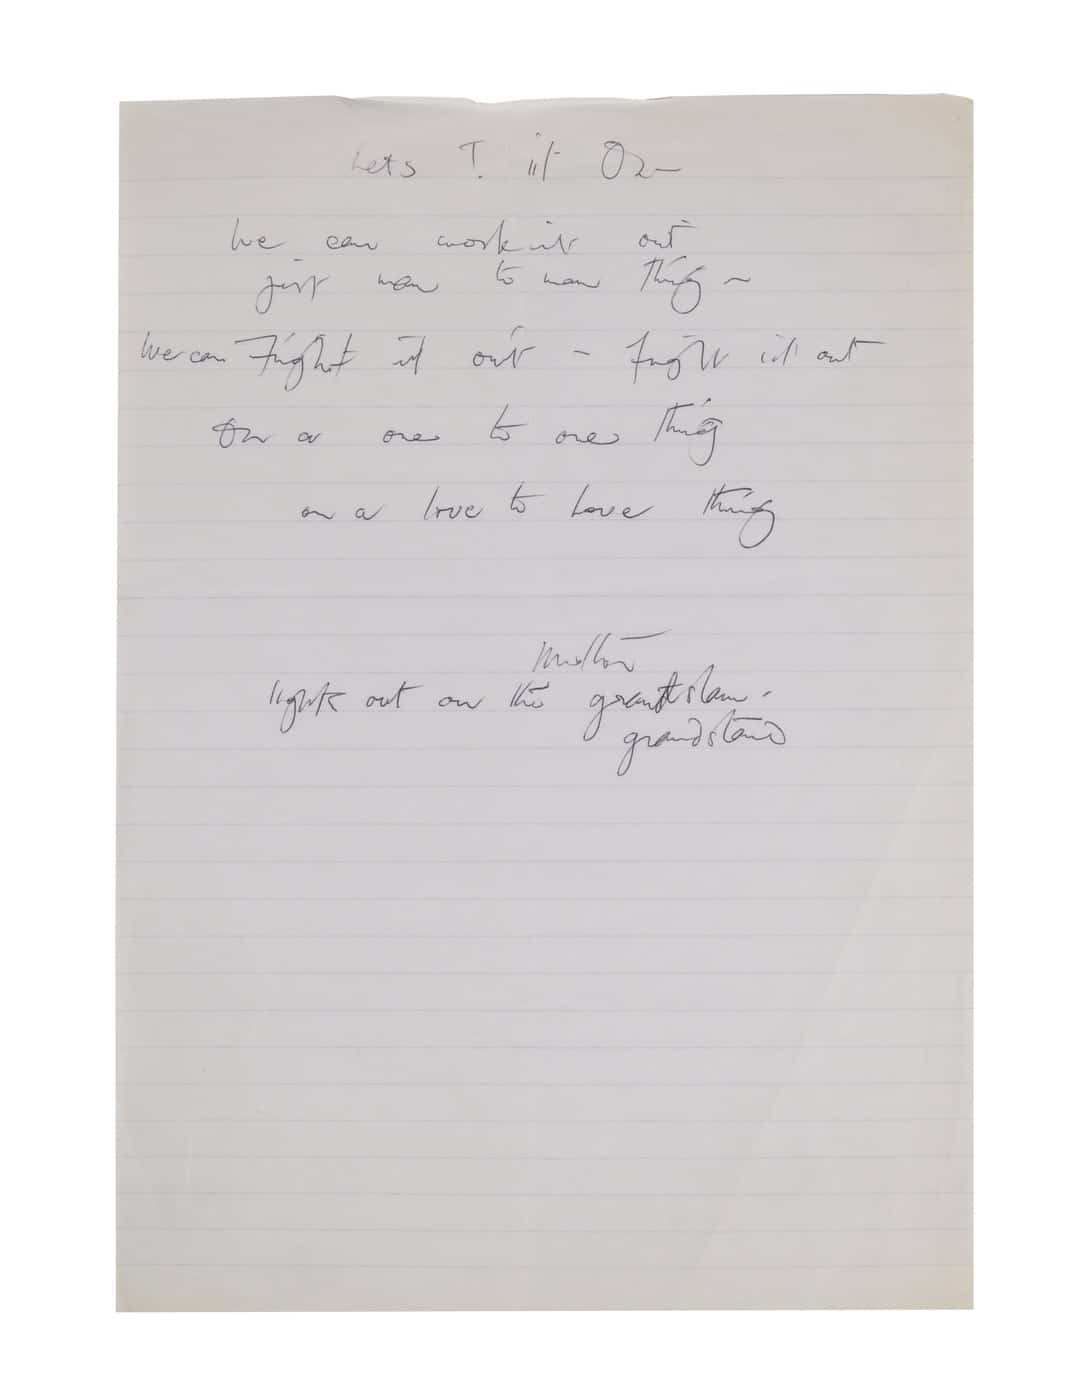 Lets T. it
We can work it out
just man to man thing ~
We can Fight it out - fight it out
On a one to one thing
on a love to Love thing
lights out on the grandslam -
grandstand